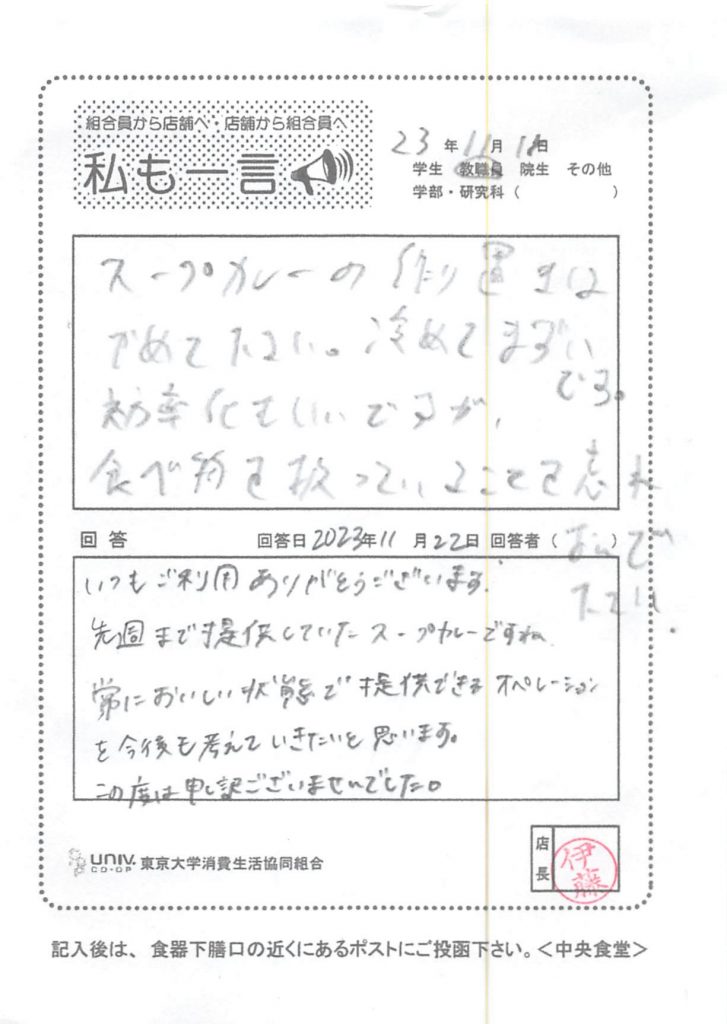 組合員から店舗へ・店舗から組合員へ
私も一言
23年11月18日
学生 教職員 院生 その他
学部・研究科（　　　）
スープカレーの作り置きは
やめて下さい。冷めてまずい
です。
効率化もいいですが、
食べ物を扱っていることを忘れ
ないで
下さい.
回答 回答日2023年11月22日 回答者（　　　）
いつもご利用ありがとうございます.
先週まで提供していたスープカレーですね
常においしい状態で提供できるオペレーション
を今後も考えていきたいと思います。
この度は申し訳ございませんでした。
UNIV. CO-OP 東京大学消費生活協同組合
店長 伊藤
記入後は、食器下膳口の近くにあるポストにご投函下さい。＜中央食堂＞